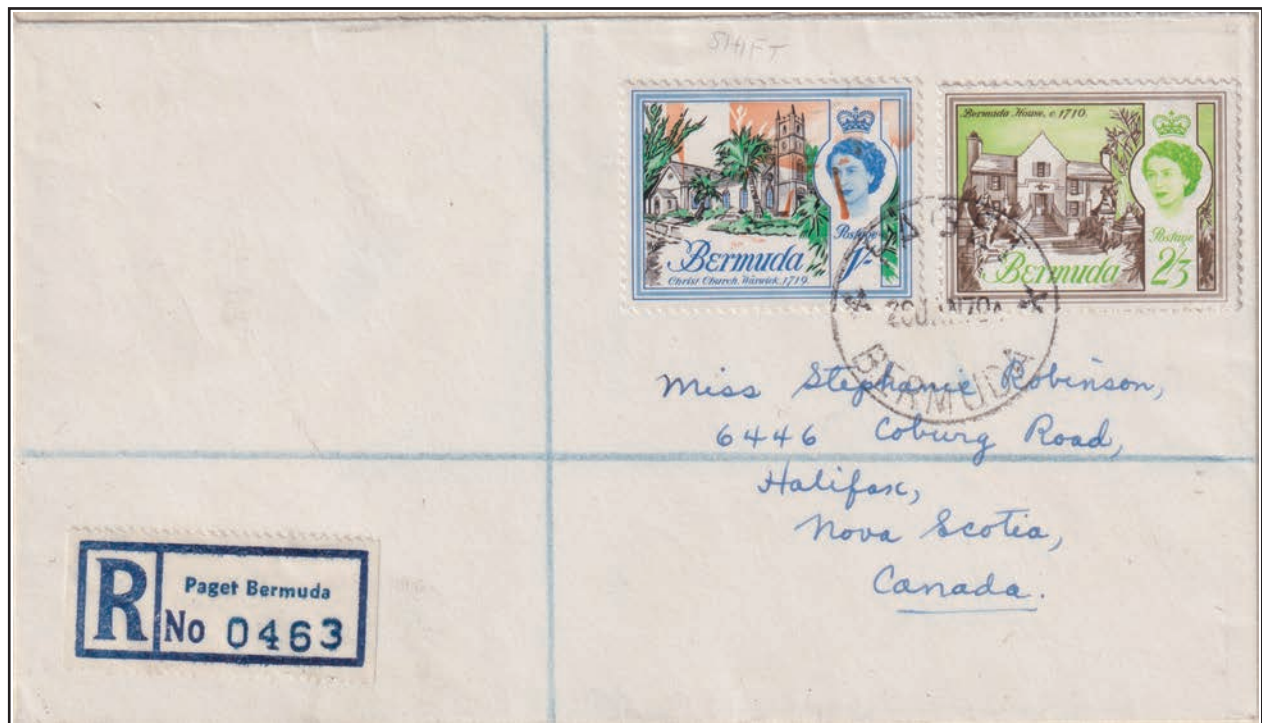 SHIFT
Postage
1/-
Bermuda
Christ Church, Warwick, 1719.
Bermuda House, c. 1710.
Postage
2/3
Bermuda
BERMUDA
Miss Stephanie Robinson,
6446 Coburg Road,
Halifax,
Nova Scotia,
Canada.
R
Paget Bermuda
No 0463